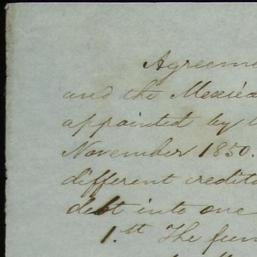 Agreeme
and the Mexica
appointed by
November 1850.
different credito
debt into one
1.st The fun